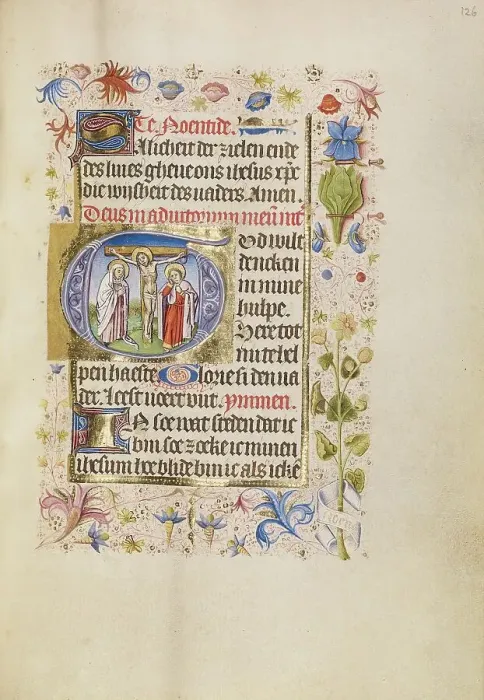 126
Te Noentide.
Salicheit der zielen ende
des liues gheue ons ihesus xpc
die wijsheit des uaders. Amen.
Deus in adiutorium meū int
God wilt
dencken
in mine
hulpe.
Here tot
mi te hel
pen haeste Glorie si den ua
der. Leest voert uut. Ymmen.
In soe wat steden dat ic
bin soe zoeke ic minen
ihesum hoe blide bin ic als icke